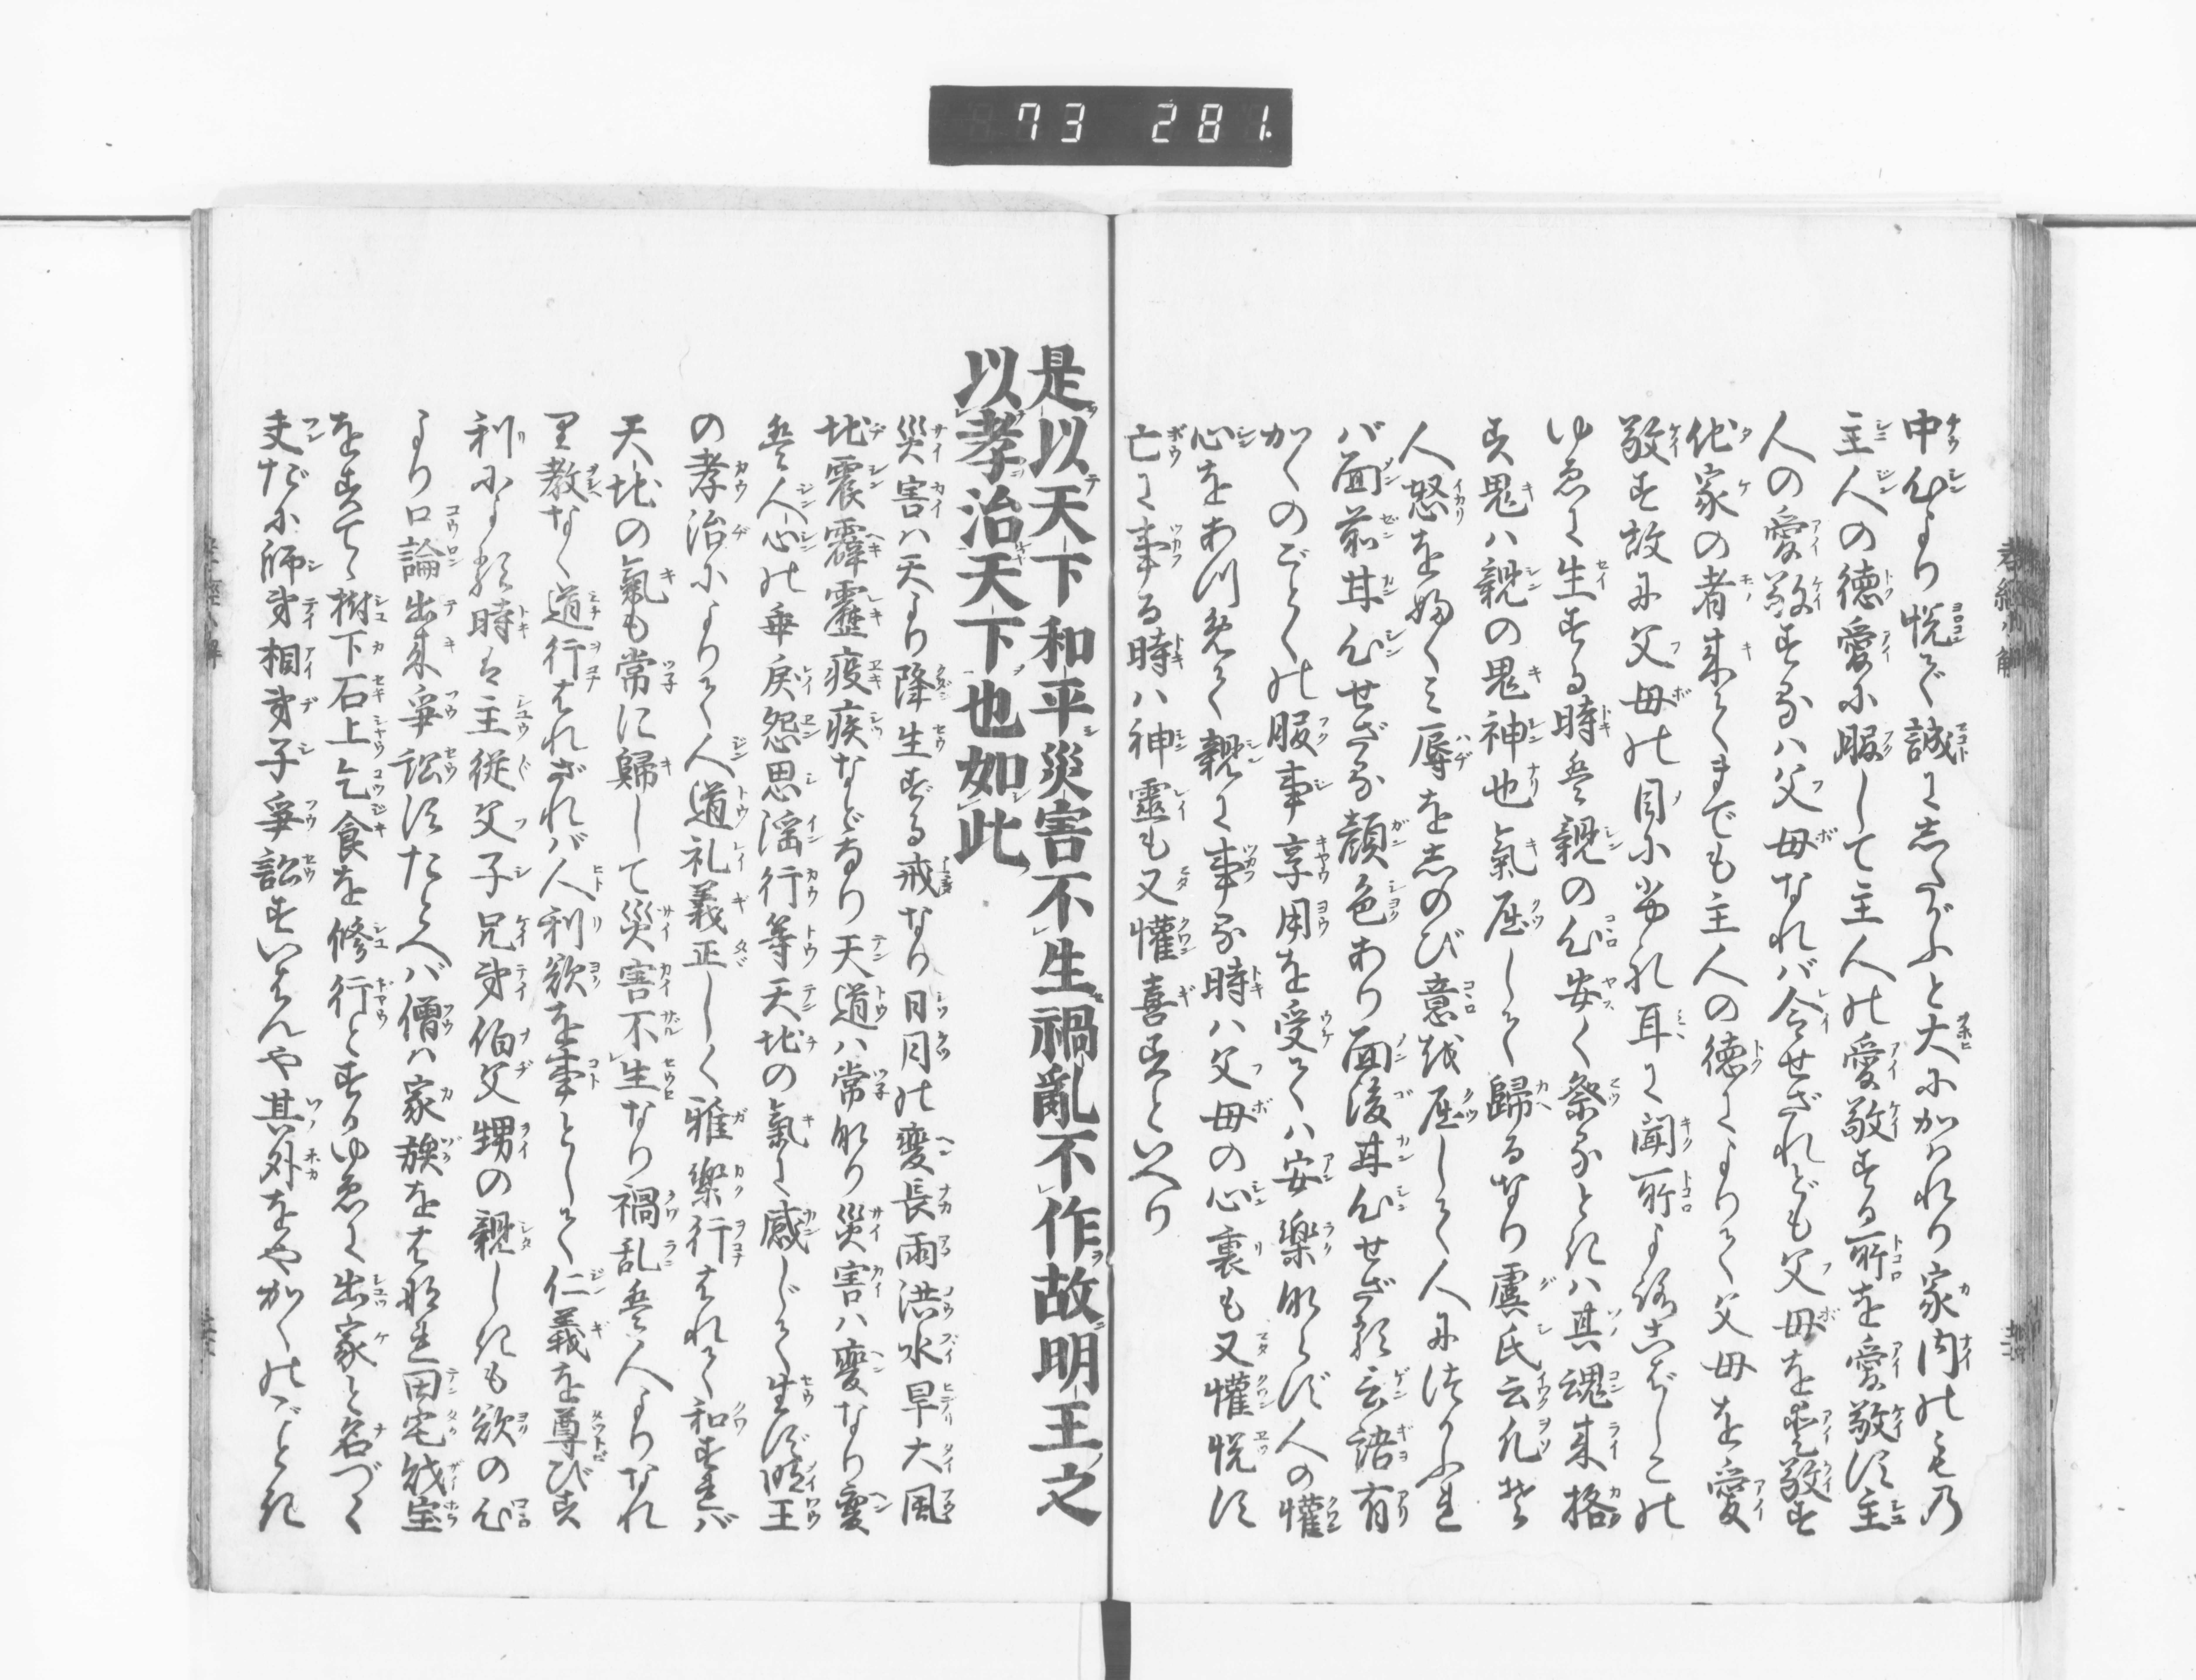 73 281
中心より悦で誠にしたがふと大にかはれり家内のもの
主人の徳愛に服して主人の愛敬する所を愛敬す主
人の愛敬するは父母なれバ令せざれども父母を愛敬す
他家の者来てまでも主人の徳によりて父母を愛
敬す故に父母の目に当れ耳に聞所よろこばしこの
ゆゑに生する時は親の心安く祭るときは其魂来格
す鬼は親の鬼神也氣屈して歸るなり虞氏云凡そ
人怒をふくみ辱をしのび意を屈して人につかふれ
バ面前甘心せざる顔色あり面後甘心せざる言語有
かくのごとくの服事享用を受ては安樂ならず人の懽
心をあつめて親に事る時ハ父母の心裏も又懽悦す
亡に事る時ハ神靈も又懽喜すといへり
是以天下和平災害不生禍亂不作故明王之
以孝治天下也如此
災害ハ天より降生ずる戒なり日月の変長雨洪水旱大風
地震霹靂疫疾などなり天道ハ常なり災害ハ変なり変
は人心の乖戻怨思淫行等天地の氣に感じて生ず明王
の孝治によりて人道礼義正しく雅樂行はれて和すれバ
天地の氣も常に歸して災害不生なり禍乱は人よりなれ
里教なく道行はれざれバ人利欲を事として仁義を尊びず
利による時は主従父子兄弟伯父甥の親しきも欲の心
より口論出来爭訟すたとへバ僧は家族をはなれ田宅財宝
をすてゝ樹下石上乞食を修行とするゆゑに出家と名づく
まだに師弟相弟子爭訟すいはんや其外をやかくのごとき